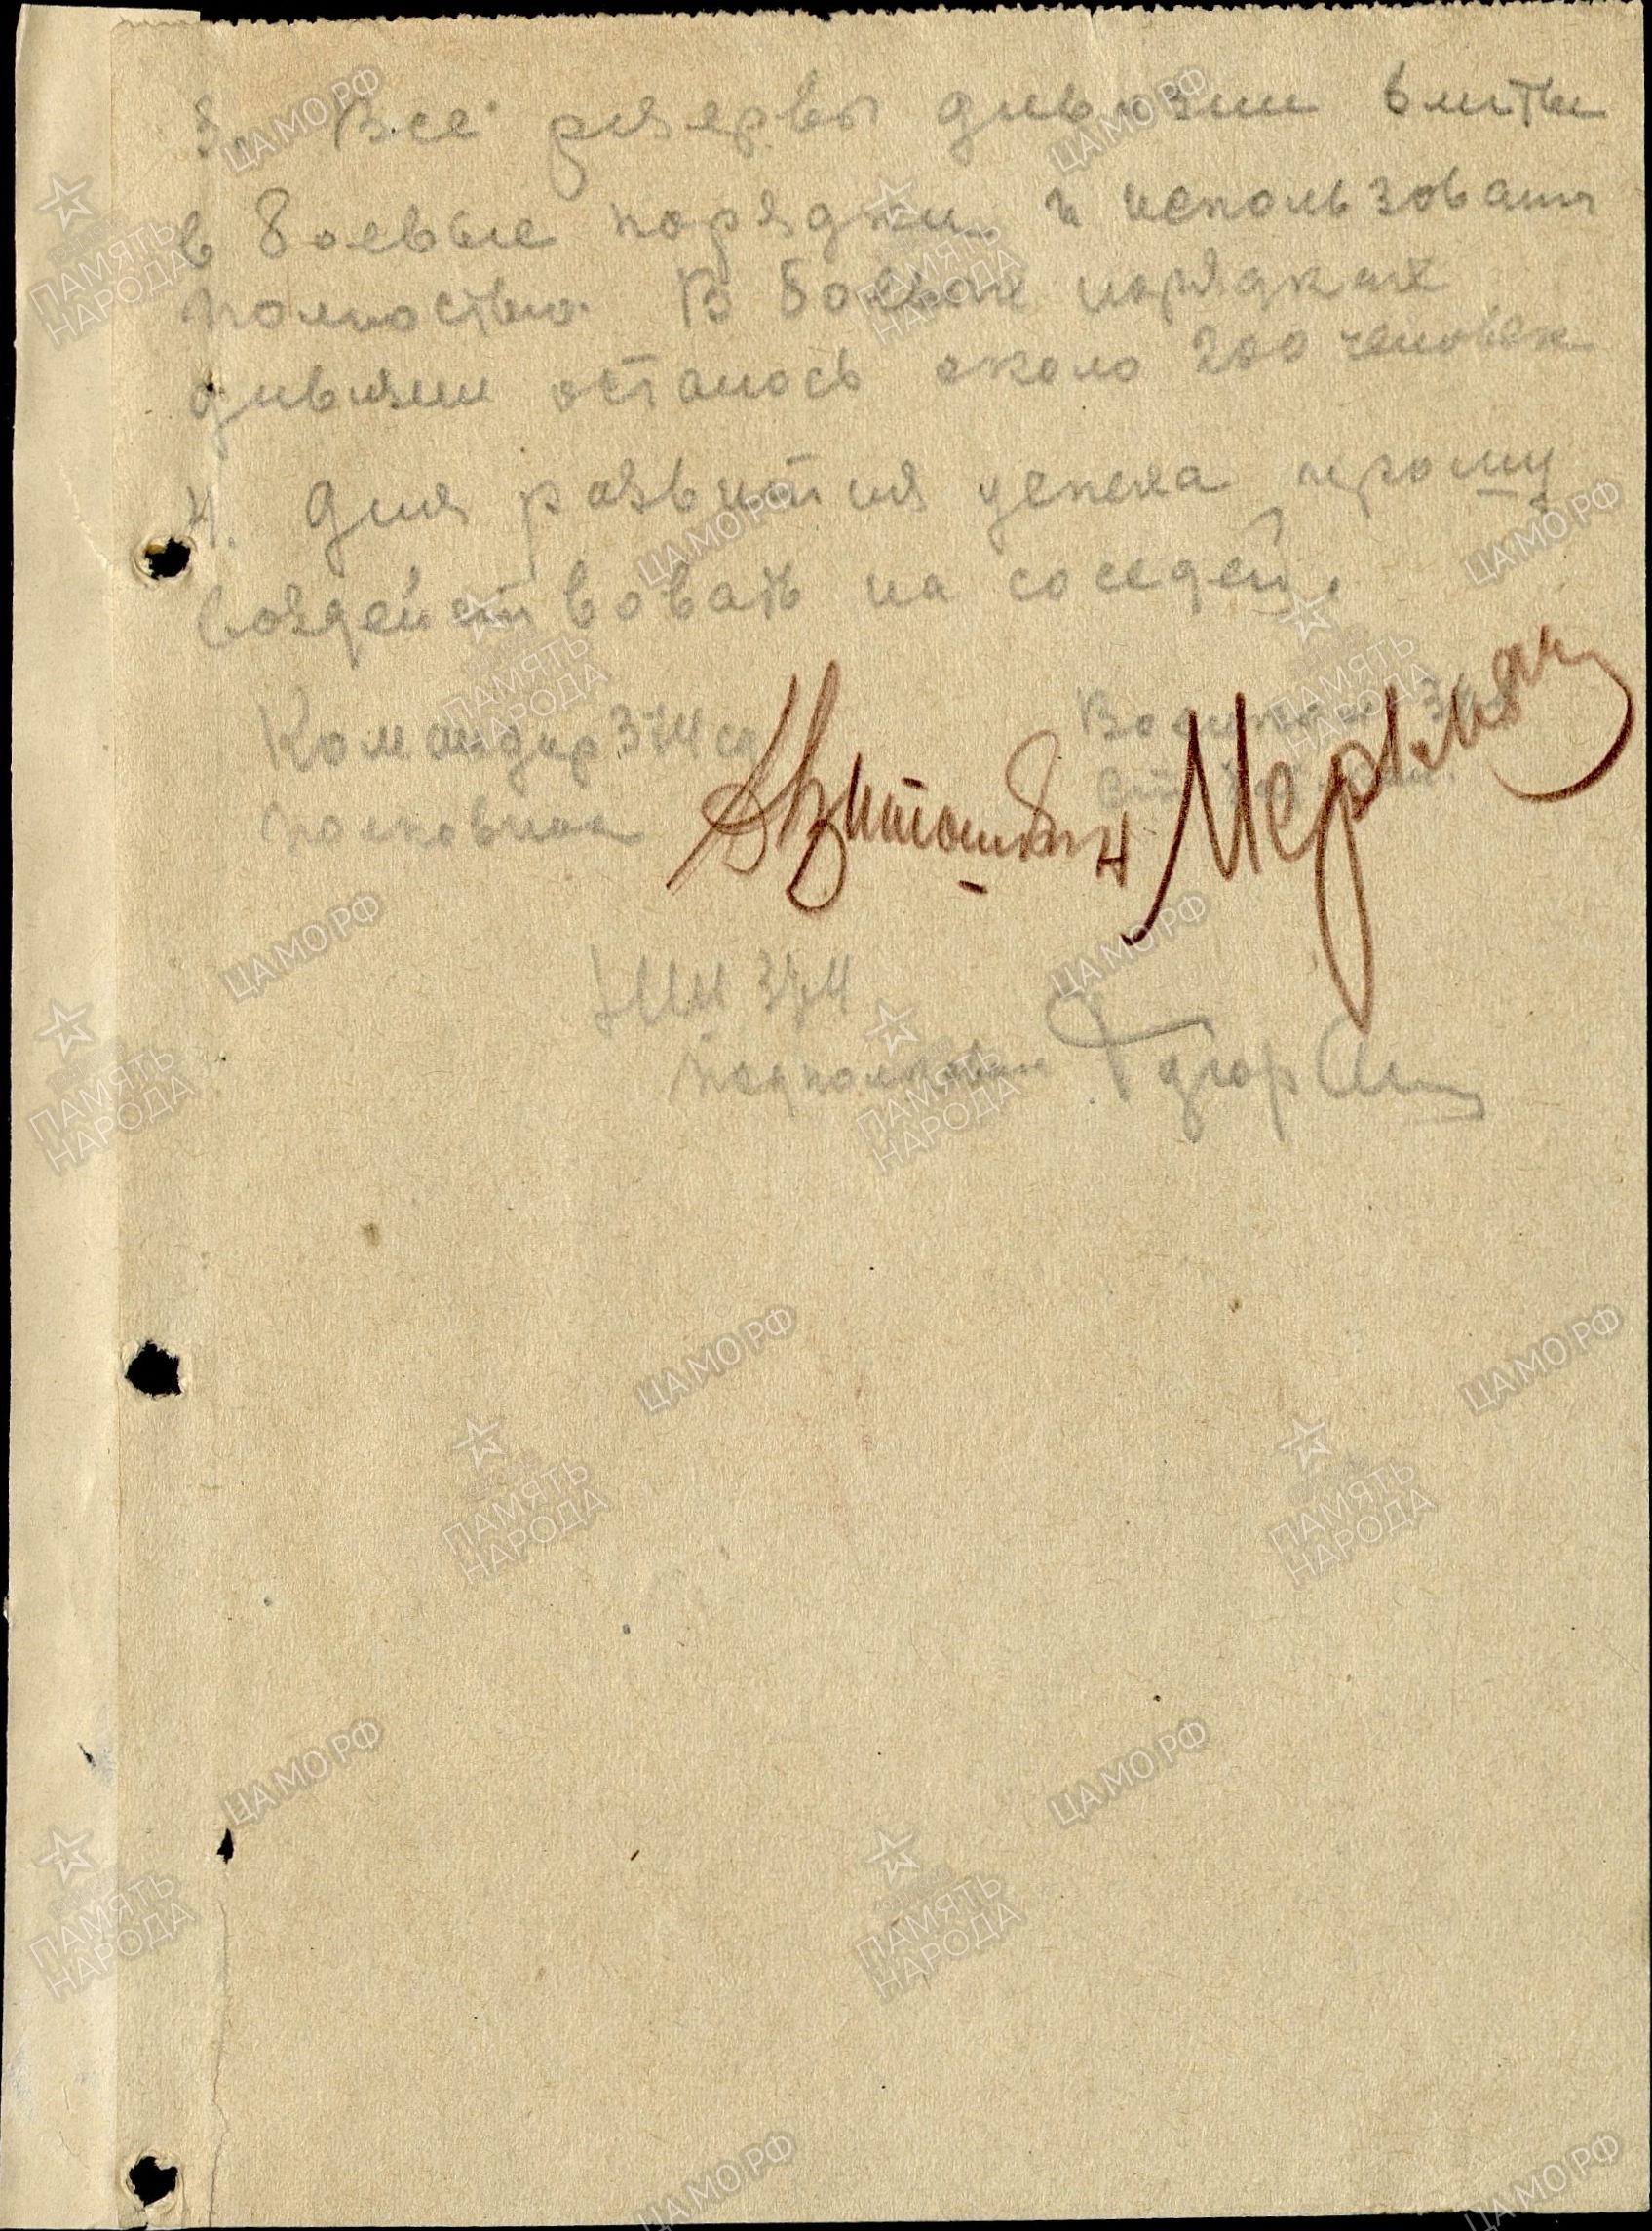 3. Все резервы дивизии влиты
в боевые порядки и использованы
полностью. В боевых порядках
дивизии осталось около 200 человек
4. Для развития успеха прошу
воздействовать на соседей.
Командир 374 сд
Военком
полковник
НШ 374
подполковник
ЦАМО.РФ
ПАМЯТЬ НАРОДА